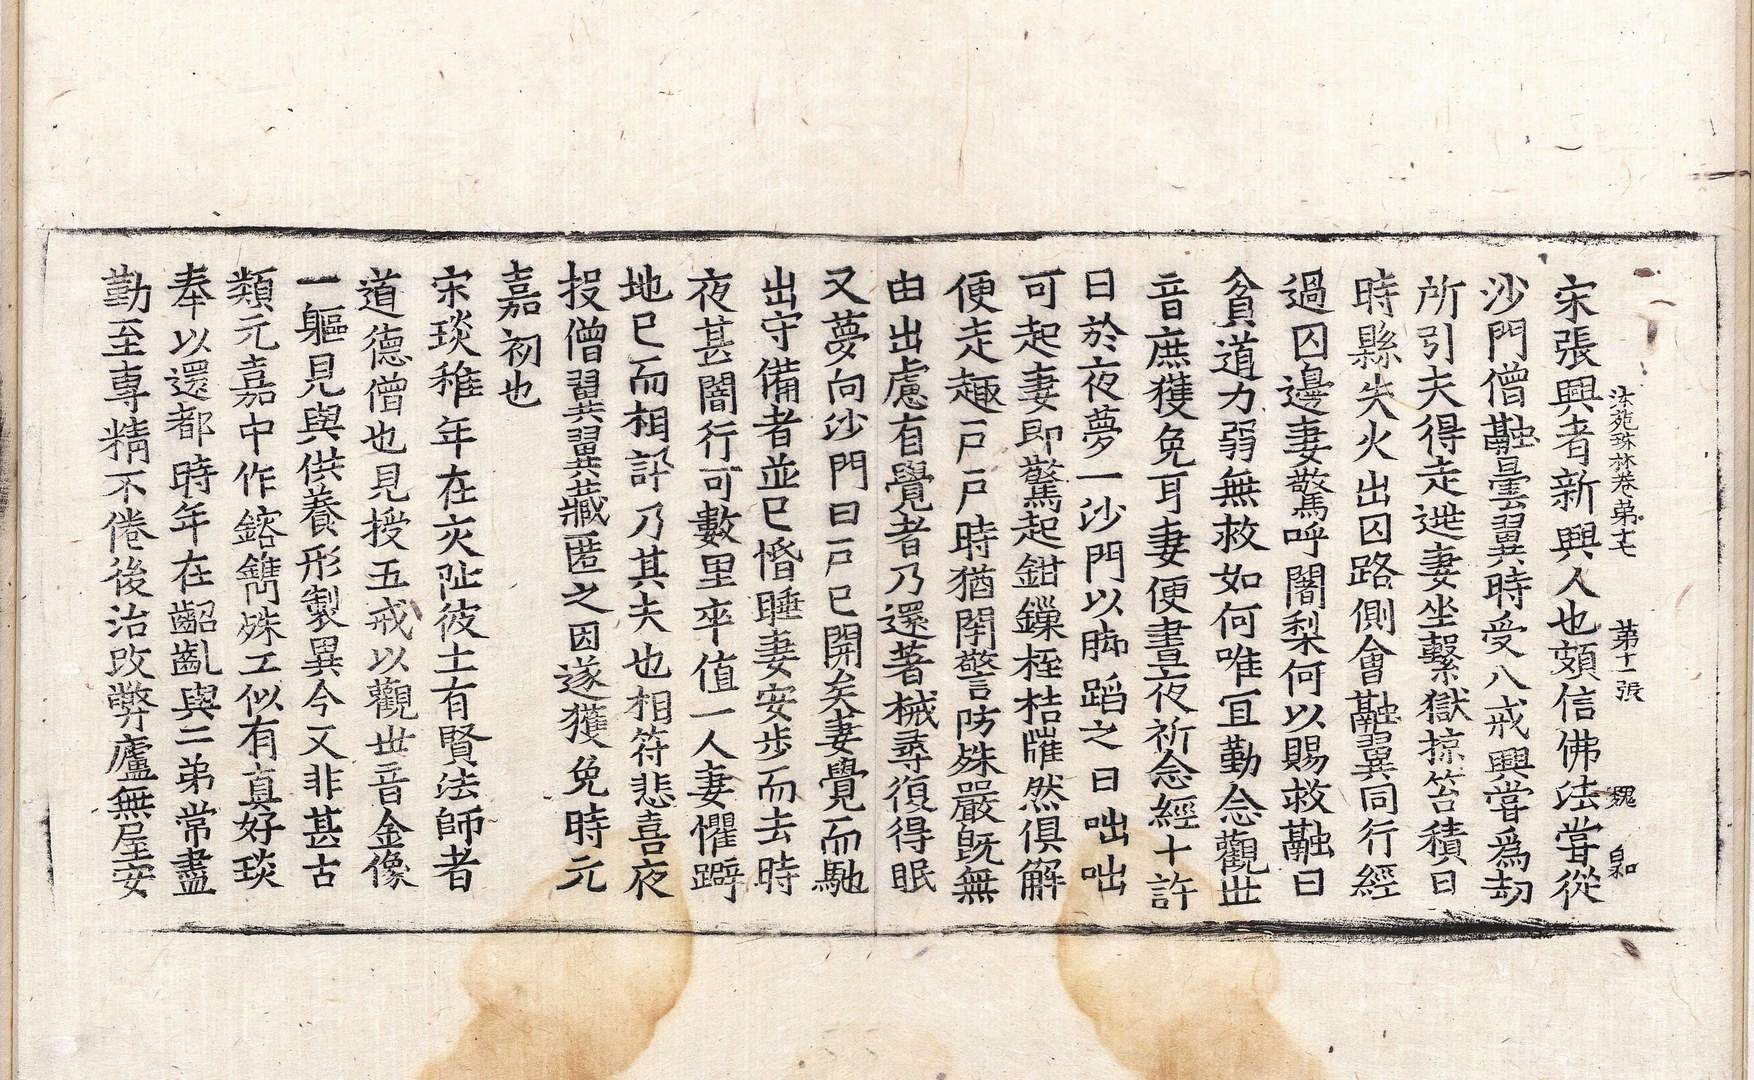 法苑珠林卷第十七 第十一張 魏 和
宋張興者新興人也頗信佛法嘗從
沙門僧融曇翼時受八戒興嘗爲劫
所引夫得走逃妻坐繫獄掠笞積日
時縣失火出囚路側會融翼同行經
過囚邊妻驚呼闍梨何以賜救融曰
貧道力弱無救如何唯宜勤念觀世
音庶獲免耳妻便晝夜祈念經十許
日於夜夢一沙門以脚蹈之曰咄咄
可起妻即驚起鉗鏁桎梏摧然俱解
便走趣戶戶時猶閇警防殊嚴旣無
由出慮有覺者乃還著械尋復得眠
又夢向沙門曰戶已開矣妻覺而馳
出守備者並已惛睡妻安步而去時
夜甚闇行可數里卒值一人妻懼躃
地已而相訊乃其夫也相符悲喜夜
投僧翼翼藏匿之因遂獲免時元
嘉初也
宋琰稚年在交阯彼土有賢法師者
道德僧也見授五戒以觀世音金像
一軀見與供養形製異今又非甚古
類元嘉中作鎔鐫殊工似有真好琰
奉以還都時年在齠齔與二弟常盡
勤至専精不倦後治改弊廬無屋安